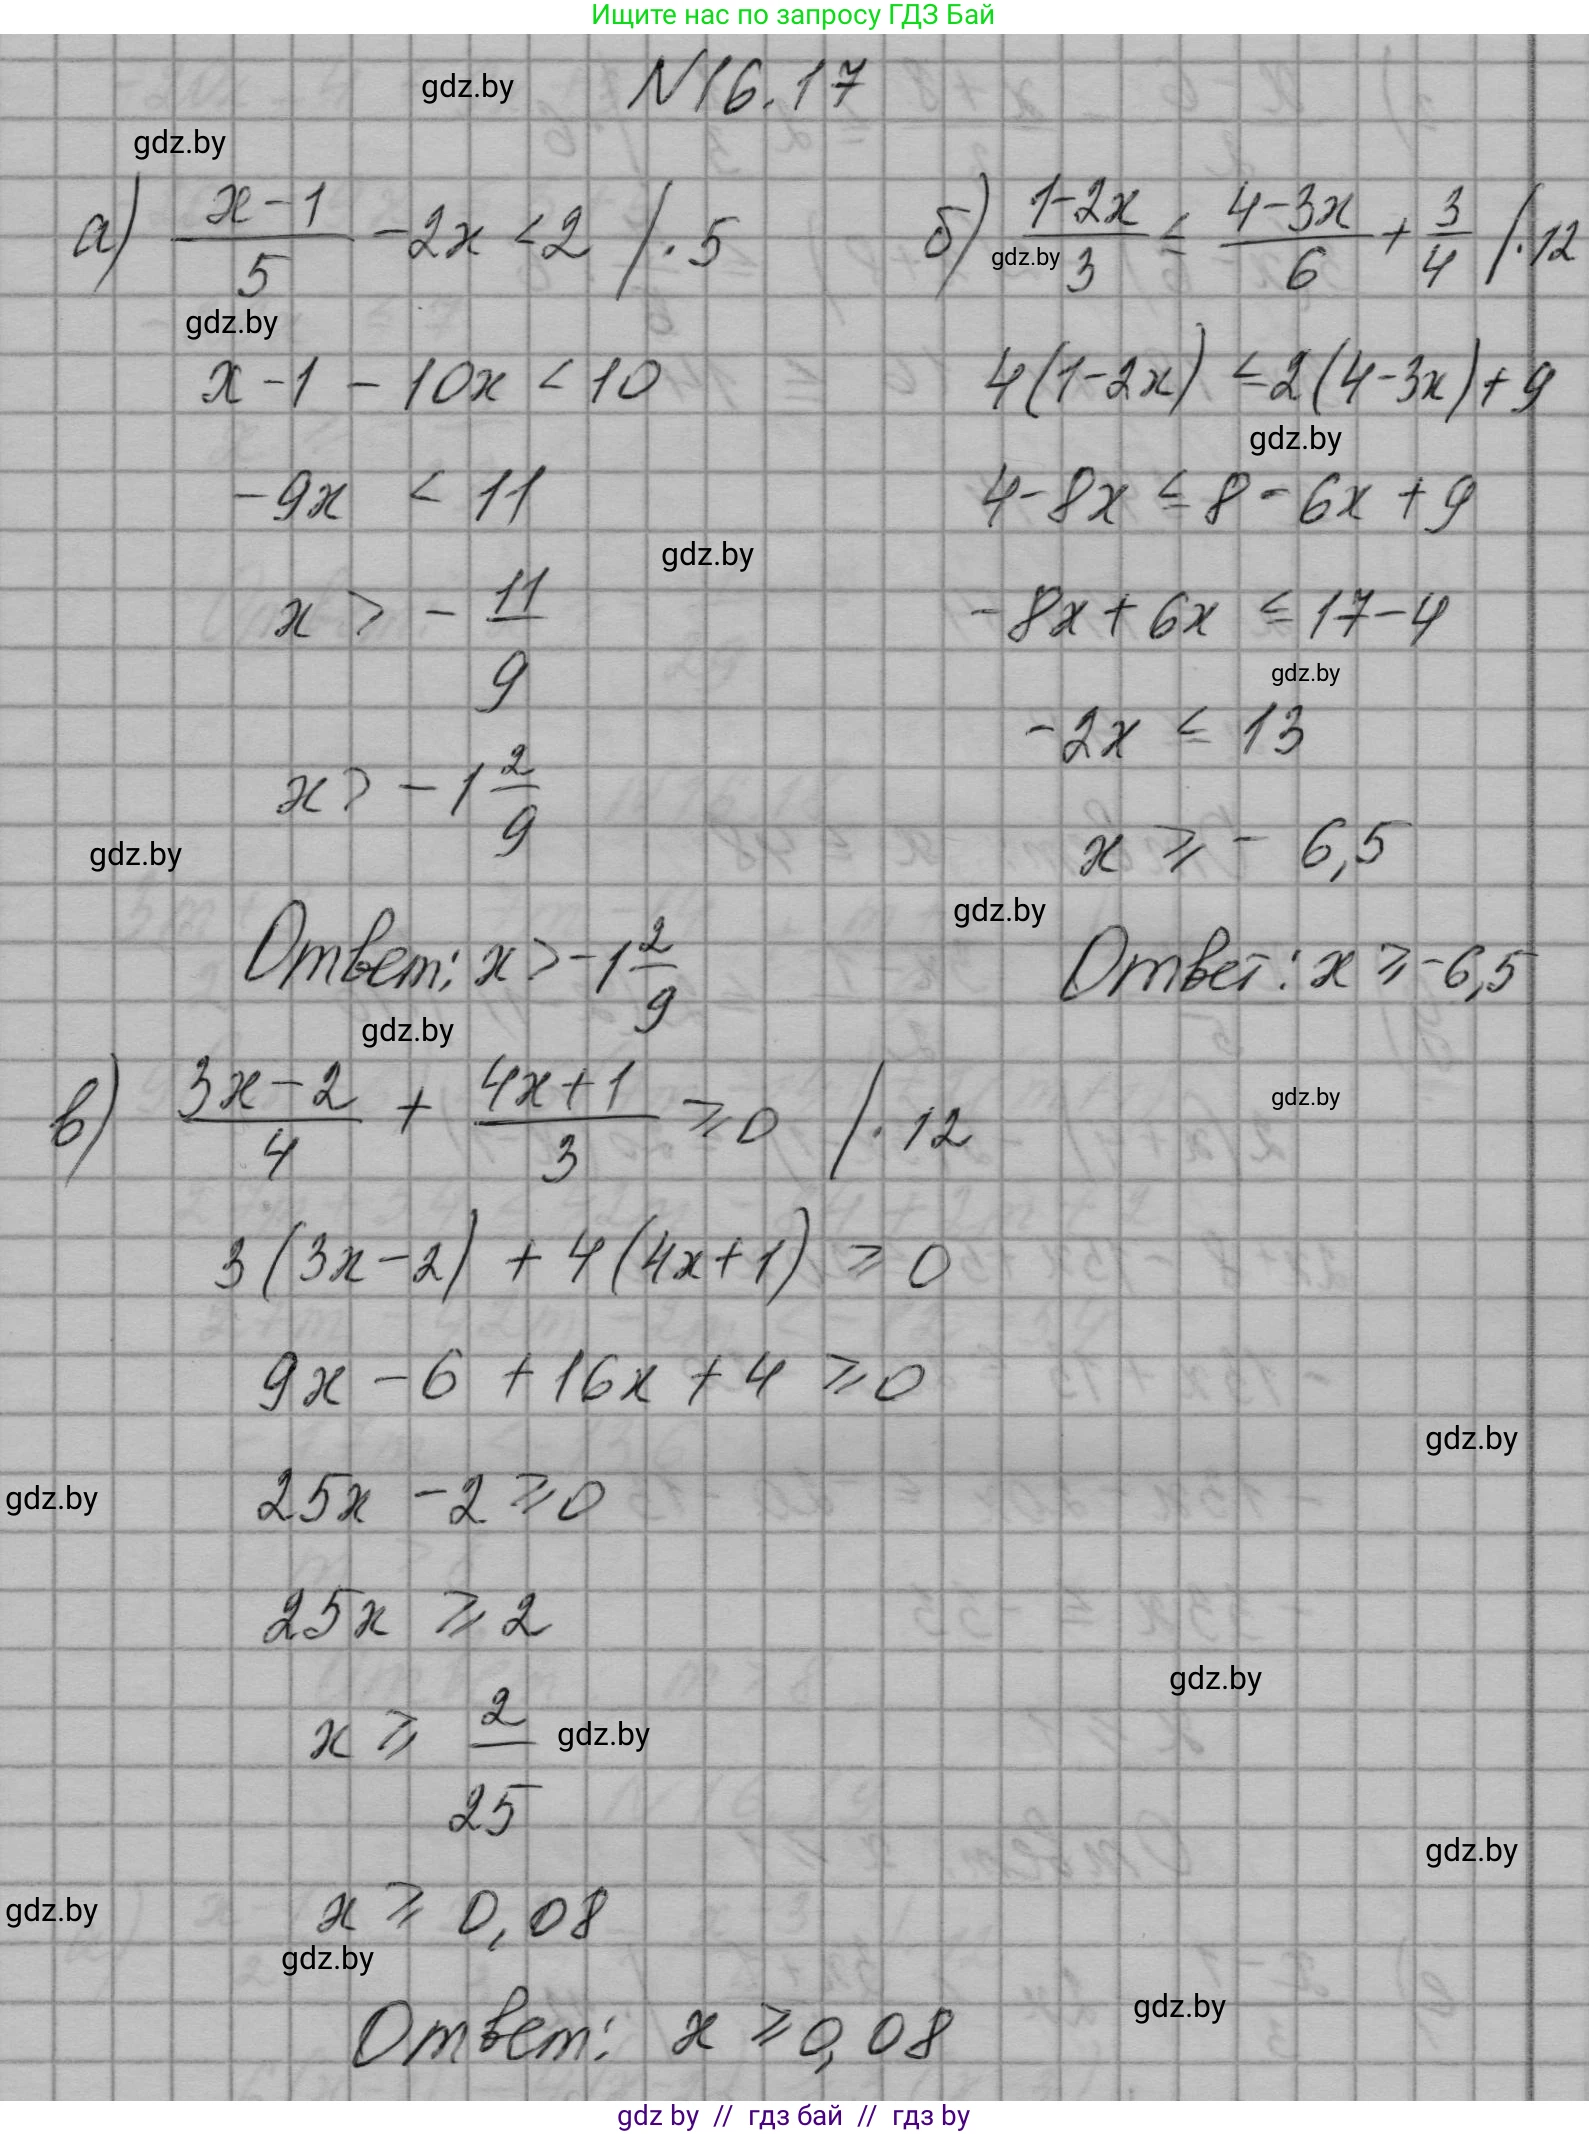 Ищите нас по запросу ГДЗ Бай
N16.17
gdz.by
gdz.by
а) (x-1)/5 -2x <2 /·5
gdz.by
x-1 - 10x < 10
-9x < 11
gdz.by
x > - 11/9
x > -1 2/9
gdz.by
Ответ: x > -1 2/9
gdz.by
б) (1-2x)/3 ≤ (4-3x)/6 + 3/4 /·12
gdz.by
4(1-2x) ≤ 2(4-3x)+9
gdz.by
4-8x ≤ 8-6x+9
-8x+6x ≤ 17-4
gdz.by
-2x ≤ 13
x ≥ - 6,5
gdz.by
Ответ: x ≥ -6,5
gdz.by
в) (3x-2)/4 + (4x+1)/3 ≥ 0 /·12
3(3x-2) + 4(4x+1) ≥ 0
9x - 6 + 16x + 4 ≥ 0
gdz.by
gdz.by
25x - 2 ≥ 0
25x ≥ 2
gdz.by
x ≥ 2/25
gdz.by
gdz.by
gdz.by
x ≥ 0,08
gdz.by
gdz.by
Ответ: x ≥ 0,08
gdz by // гдз бай // гдз by